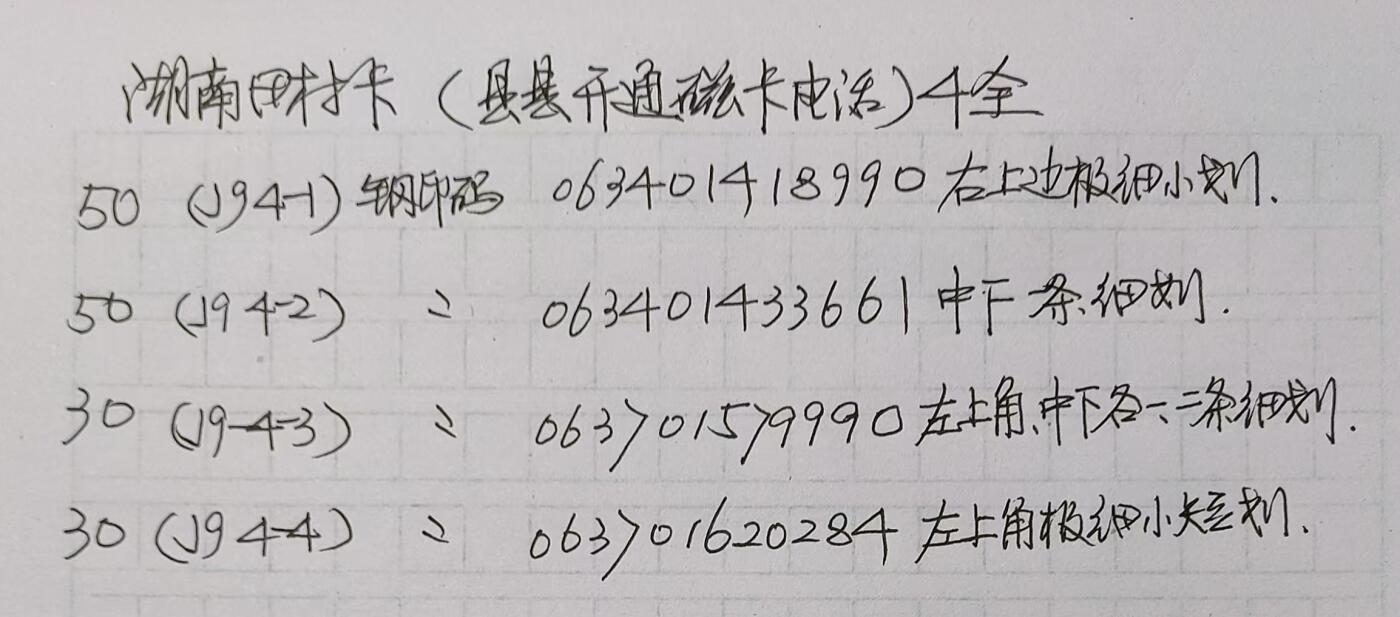 湖南田村卡（县县开通磁卡电话）4全
50 (J9 4-1) 钢印码 063401418990 右上边极细小划.
50 (J9 4-2) 〃 063401433661 中下一条细划.
30 (J9-4-3) 〃 063701579990 左上角、中下各一、二条细划.
30 (J9 4-4) 〃 063701620284 左上角极细小短划.